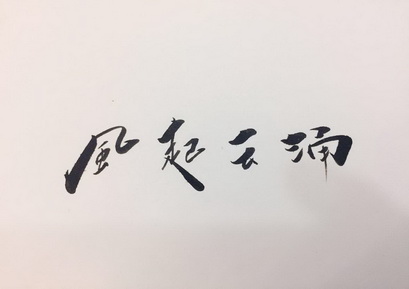 風起云涌